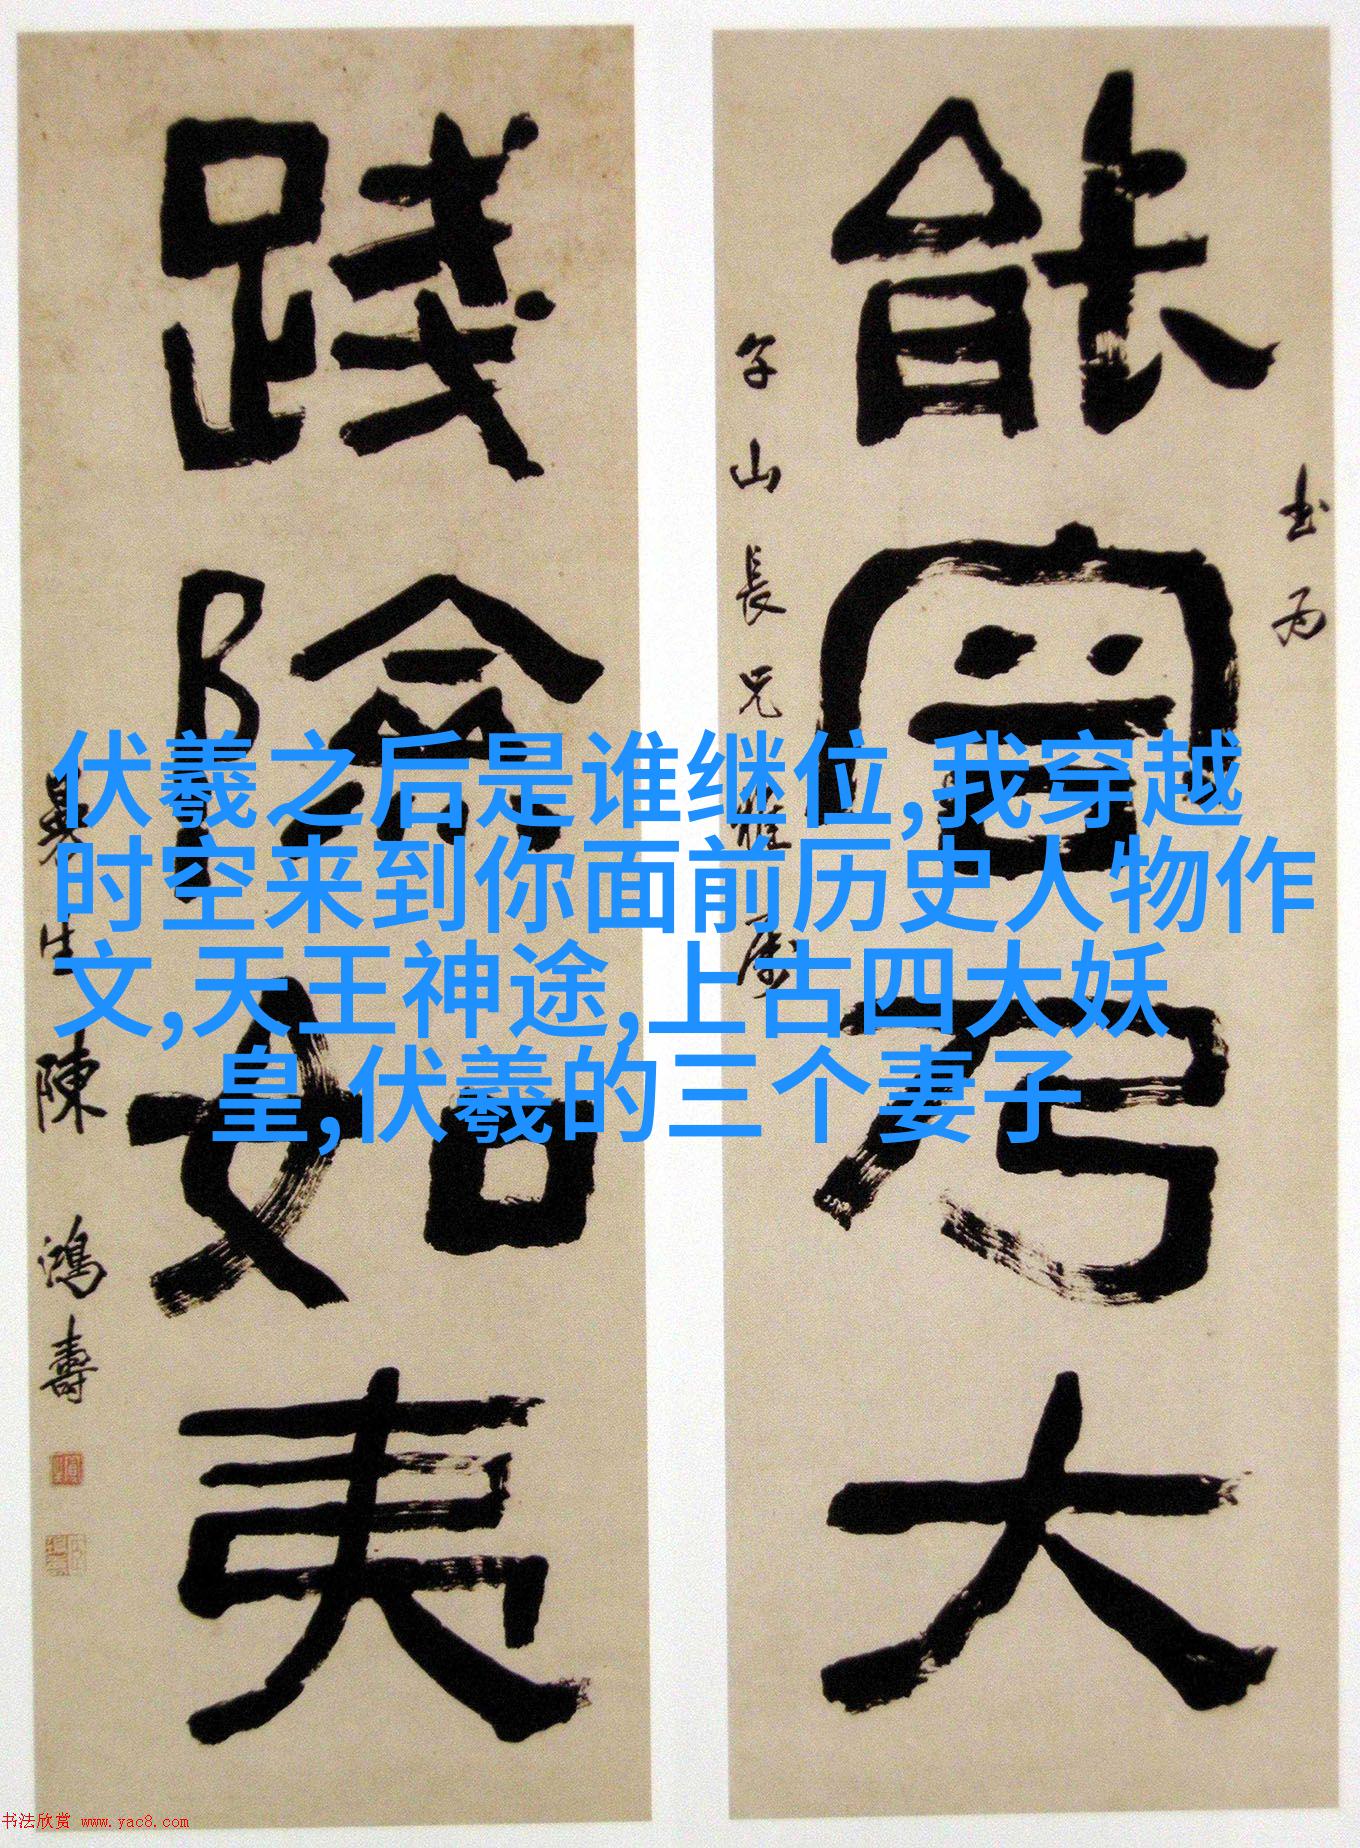 书为
能容乃大
午山長兄雅属
踐險如夷
曼生陳鴻壽
伏羲之后是谁继位,我穿越
时空来到你面前历史人物作
文,天王神途,上古四大妖
皇,伏羲的三个妻子
书法欣赏 www.yac8.com